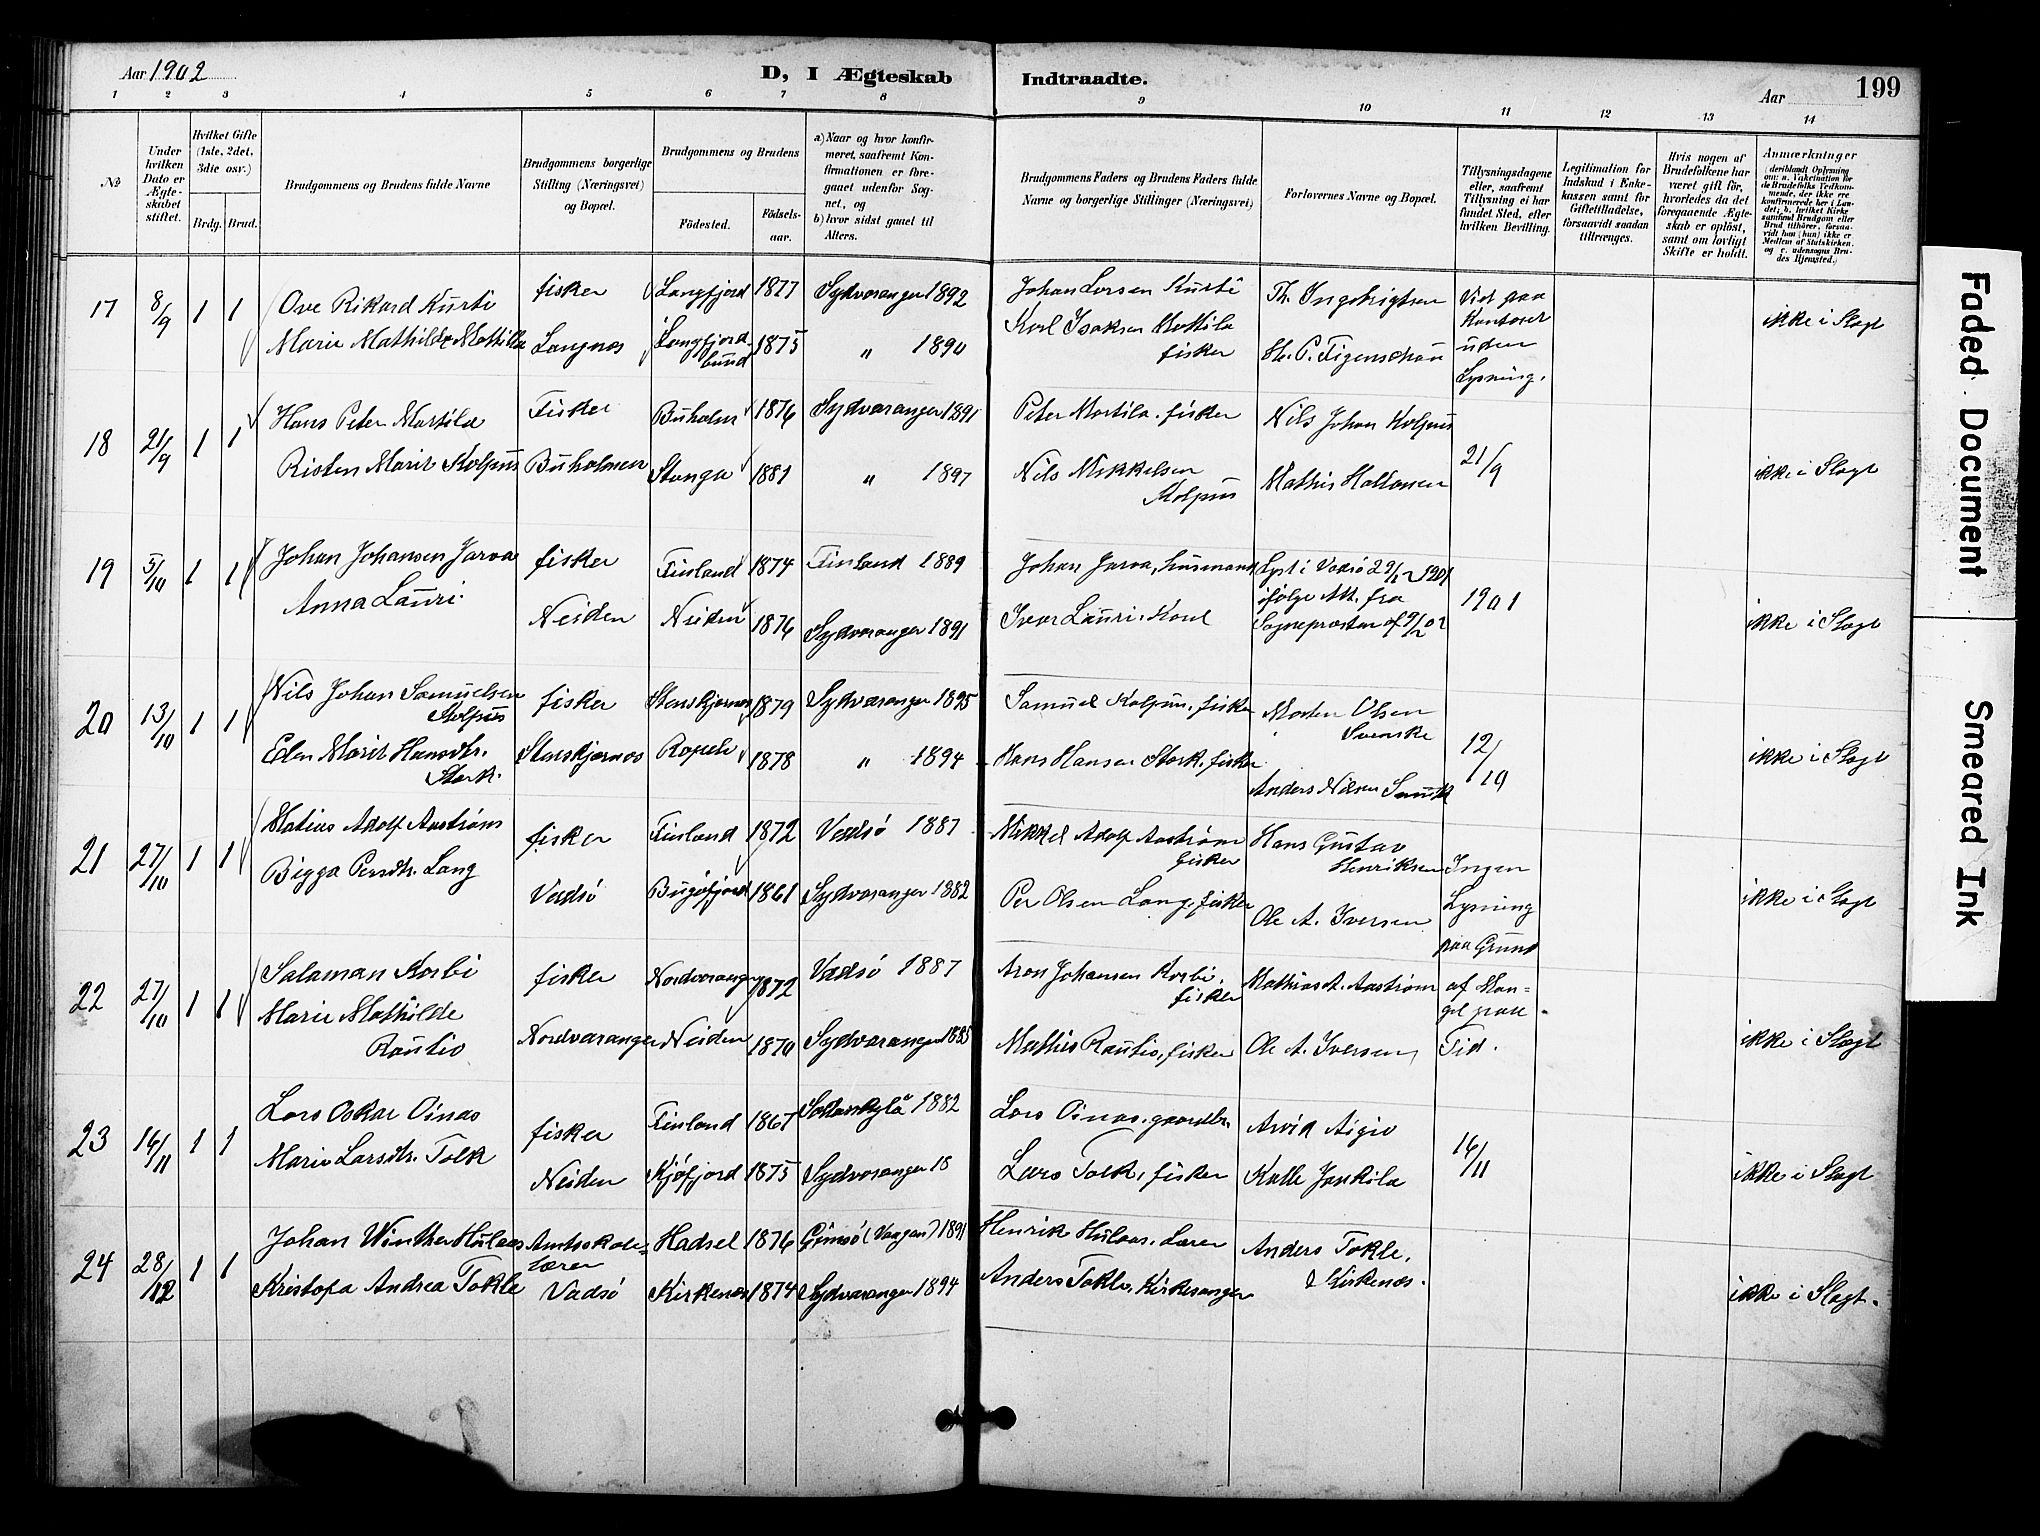 Aar 1902
D, I Ægteskab Indtraadte.
Aar 199
1 2 3 4 5 6 7 8 9 10 11 12 13 14
№
Under hvilken Dato er Ægteskabet stiftet.
Hvilket Gifte (1ste, 2det, 3die osv.)
Brdg. Brud.
Brudgommens og Brudens fulde Navne
Brudgommens borgerlige Stilling (Næringsvei) og Bopæl.
Brudgommens og Brudens
Fødested.
Fødselsaar.
a) Naar og hvor konfirmeret, saafremt Konfirmationen er foregaaet udenfor Sognet, og
b) hvor sidst gaaet til Alters.
Brudgommens Faders og Brudens Faders fulde Navne og borgerlige Stillinger (Næringsvei)
Forlovernes Navne og Bopæl.
Tillysningsdagene eller, saafremt Tillysning ei har fundet Sted, efter hvilken Bevilling.
Legitimation for Indskud i Enkekassen samt for Giftetilladelse, forsaavidt saadan tiltrænges.
Hvis nogen af Brudefolkene har været gift før, hvorledes da det foregaaende Ægteskab er opløst, samt om lovligt Skifte er holdt.
Anmærkninger (deriblandt Oplysning om: a. Vakcination for de Brudefolks Vedkommende, der ikke ere konfirmerede her i Landet; b. hvilket Kirkesamfund Brudgom eller Brud tilhører, forsaavidt han (hun) ikke er Medlem af Statskirken, og c. udensogns Brudes Hjemsted.)
17 8/9 1 1 Ove Rikard Kurti fisker Langfjord 1877 Sydvaranger 1892 Johan Larsen Kurti Th. Ingebrigtsen Viet paa Kontoret uden Lysning. ikke i Slagt
Marie Mathilde Mattila Langnes Langfjordbund 1875 " 1890 Karl Isaksen Mattila fisker H. P. Figenschou
18 21/9 1 1 Hans Peter Martila Fisker Buholm 1876 Sydvaranger 1891 Peter Martila, fisker Nils Johan Kolpus 21/9 ikke i Slagt
Risten Marit Kolpus Buholmen Stanga 1881 " 1897 Nils Mikkelsen Kolpus Mathis Haltonen
19 5/10 1 1 Johan Johansen Jarva fisker Finland 1874 Finland 1889 Johan Jarva, husmand Lyst i Vadsø 29/12 1901 ifølge Att. fra Sognepresten af 9/2 02 1901 ikke i Slagt
Anna Lauri. Neiden Neiden 1876 Sydvaranger 1891 Ivar Lauri
20 13/10 1 1 Nils Johan Samuelsen Kolpus fisker Stenskjernes 1879 Sydvaranger 1895 Samuel Kolpus, fisker Morten Olsen Svenske 12/10 ikke i Slagt
Elen Marit Hansdtr. Stork. Stenskjernes 1878 " 1894 Hans Hansen Stork, fisker Anders Nilsen
21 27/10 1 1 Matias Adolf Aastrøm fisker Finland 1872 Vadsø 1887 Mikkel Adolf Aastrøm fisker Hans Gustav Henriksen Ingen Lysning paa Grund af Mangel paa Tid. ikke i Slagt
Bigga Persdtr. Lang Vadsø Bugøfjord 1861 Sydvaranger 1882 Per Olsen Lang, fisker Ole A. Iversen
22 27/10 1 1 Salaman Korbi fisker Nordvaranger 1872 Vadsø 1887 Aron Johansen Korbi, fisker Mathias A. Aastrøm ikke i Slagt
Marie Mathilde Rautio Nordvaranger Neiden 1870 Sydvaranger 1885 Mathis Rautio, fisker Ole A. Iversen
23 16/11 1 1 Lars Oskar Oinas fisker Finland 1867 Sodankylä 1882 Lars Oinas, gaardbr. Arvid Aigio 16/11 ikke i Slagt
Marie Larsdtr. Tolk Neiden Kjøfjord 1875 Sydvaranger 18 Lars Tolk, fisker Kalle Jankila
24 28/12 1 1 Johan Winther Hulaas Amtsskolelærer Hadsel 1876 Gimsø (Vaagan) 1891 Henrik Hulaas, Lærer Anders Tokle, Kirkenæs. ikke i Slagt.
Kristofa Andrea Tokle Vadsø Kirkenæs 1874 Sydvaranger 1894 Anders Tokle, Kirkesanger
Faded Document
Smeared Ink